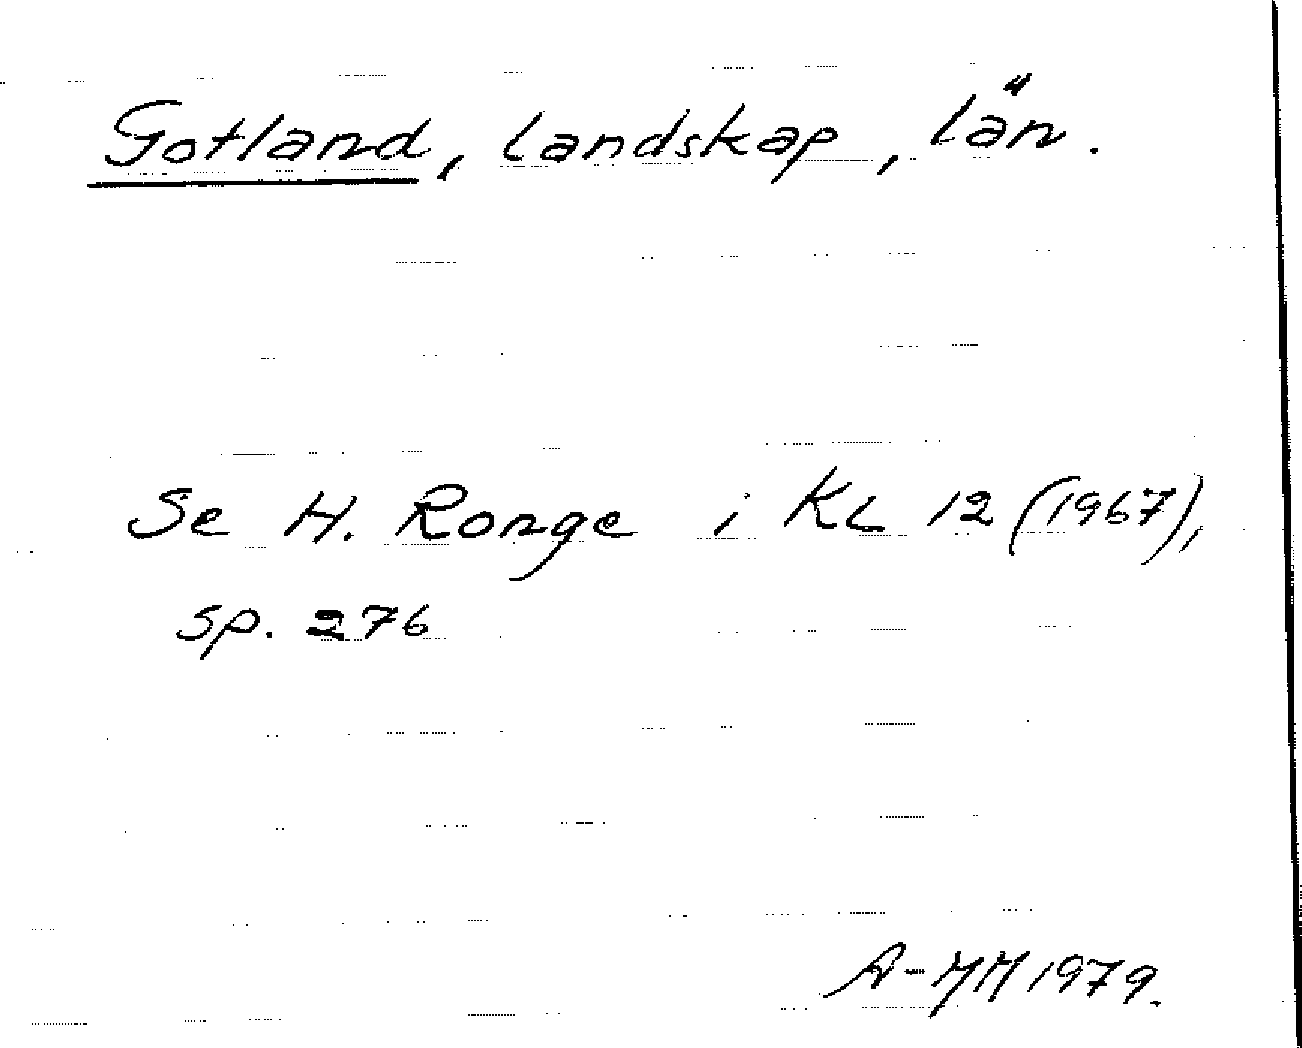 Gotland, landskap, län.
Se H. Ronge i KL 12 (1967),
sp. 276
A-MH 1979.